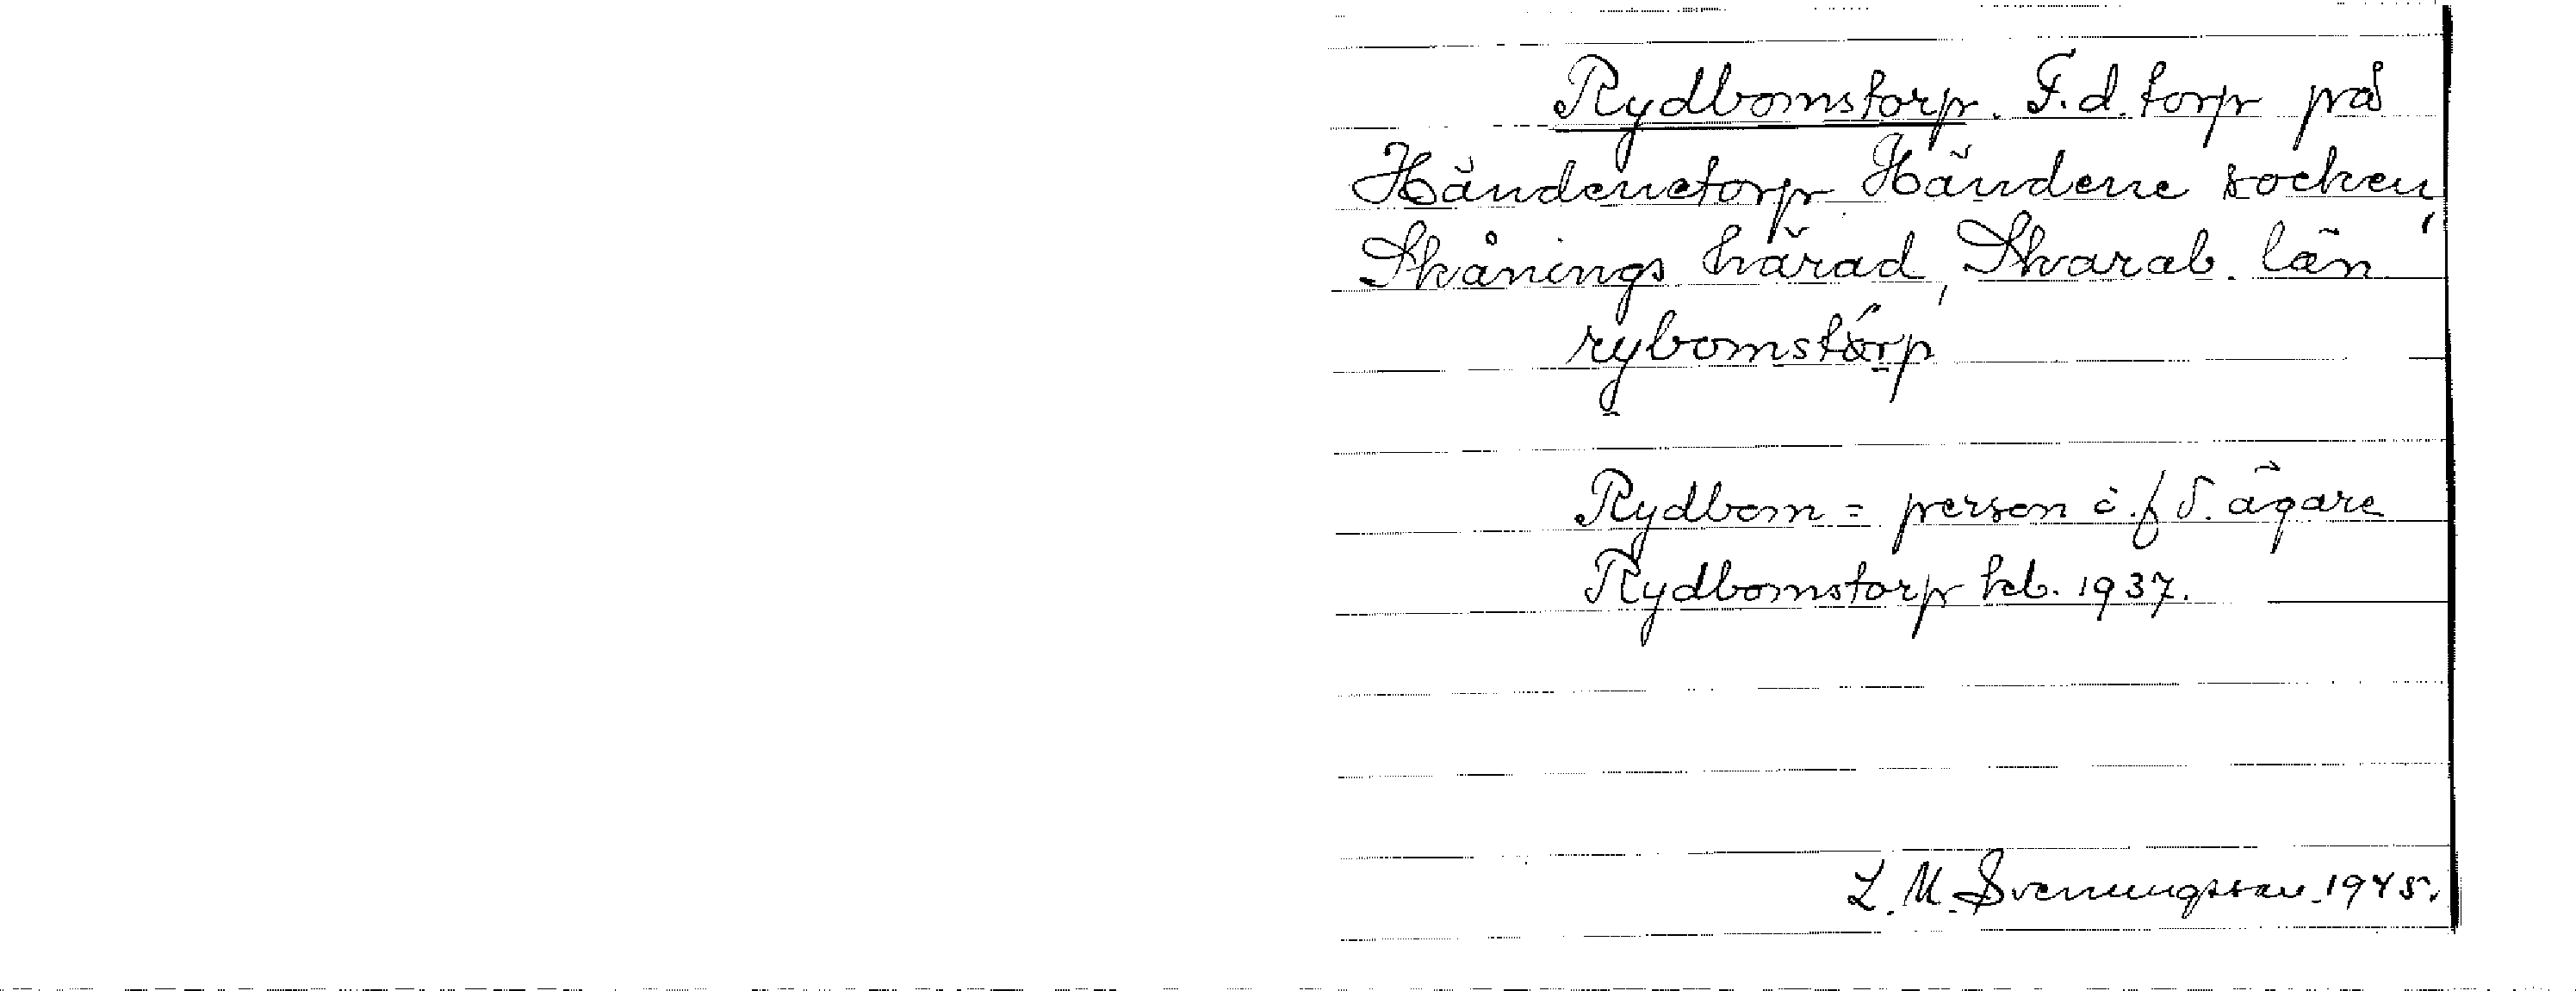 Rydbomstorp. F.d. torp på
Händenetorp Händene socken,
Skånings härad, Skarab. län
rybomstórp
Rydbom = person o. f.d. ägare
Rydbomstorp kb. 1937.
L. M. Svenungsson 1945.